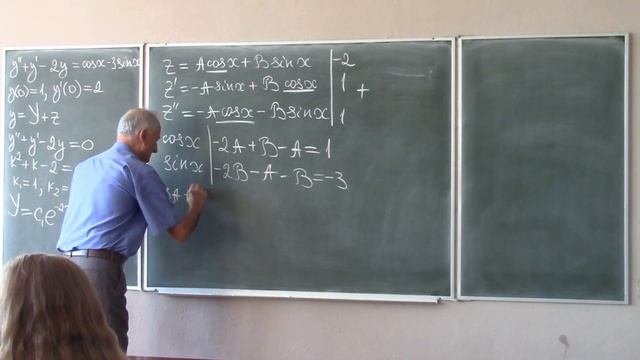 y″+y′-2y=cosx-3sinx
y(0)=1, y′(0)=2
y=Y+z
y″+y′-2y=0
k²+k-2=
k₁=1, k₂=
Y=C₁e⁻²
z=Acosx+Bsinx | -2
z′=-Asinx+Bcosx | 1 +
z″=-Acosx-Bsinx | 1
cosx | -2A+B-A=1
sinx | -2B-A-B=-3